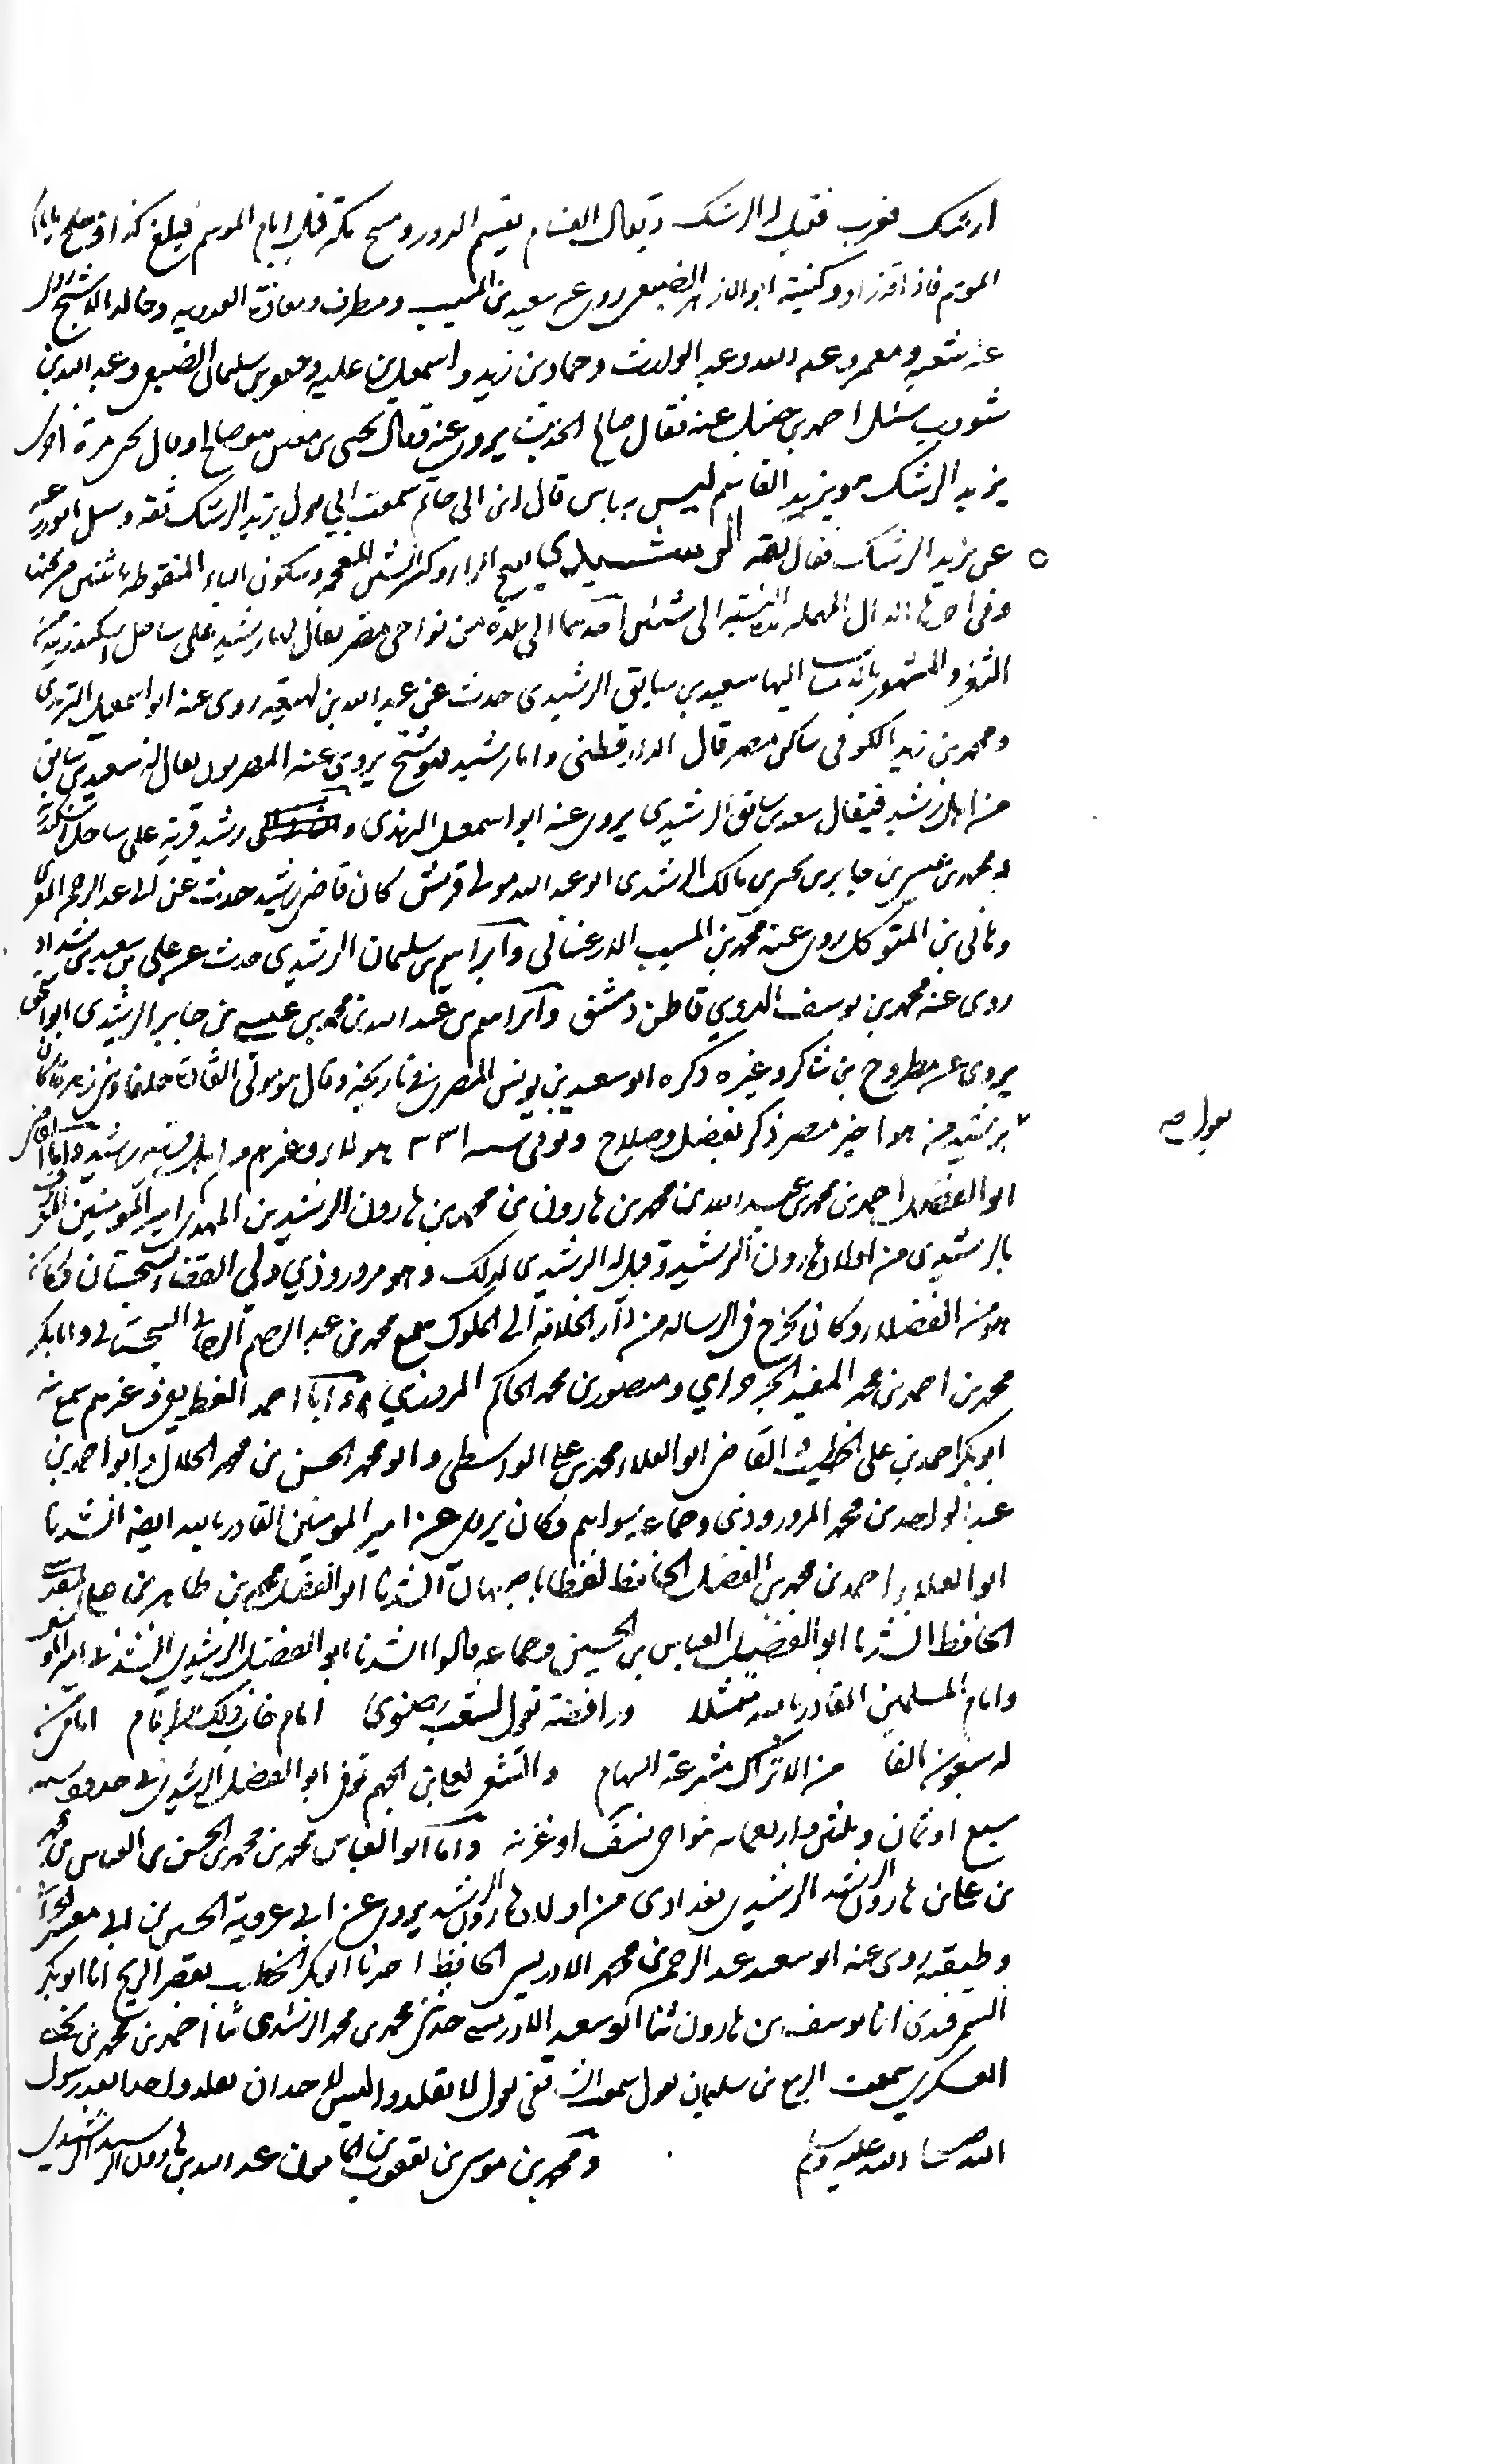 ارشك فعرب فقيل له الرشك ويقال القسام يقسم الدور ومسح مكة قبل ايام الموسم فبلغ كذا ومسح ايام
الموسم فاذا قد زاد وكنيته ابو الازهر الضبعى روى عن سعيد بن المسيب ومطرف ومعاذة العدويه وخالد الاشج روى
عنه شعبه ومعمر وعبد الوارث وحماد بن زيد واسمعيل بن عليه وجعفر بن سليمان الضبعى وعبد الله بن
شوذب سئل احمد بن حنبل عنه فقال صالح الحديث يروى عنه وقال يحيى بن معين هو صالح وقال يحيى مرة اخرى
يزيد الرشك هو يزيد القاسم ليس به باس قال ابن ابى حاتم سمعت ابي يقول يزيد الرشك ثقه وسئل ابو زرعه
عن يزيد الرشك فقال ثقه الرشيدي بفتح الراء وكسر الشين المعجمه وسكون الياء المنقوطه باثنتين من تحتها
وفى اخرها الدال المهمله هذه النسبة الى شيئين احدهما الى بلدة من نواحى مصر يقال لها رشيد على ساحل اسكندرية
الثغر والمشهور بالانتساب اليها سعيد بن سابق الرشيدى حدث عن عبد الله بن لهيعه روى عنه ابو اسمعيل الترمذى
ومحمد بن زيد الكوفى ساكن مصر قال الدارقطنى واما رشيد فهو شيخ يروى عنه المصريون يقال له سعيد بن سابق
من اهل رشيد فيقال سعيد بن سابق الرشيدى يروى عنه ابو اسمعيل الترمذى رشيد قرية على ساحل اسكندرية
ومحمد بن عيسى بن جابر بن يحيى بن مالك الرشيدى ابو عبد الله مولى قريش كان قاضى رشيد حدث عن ابى عبد الرحمن المقرى
وهانى بن المتوكل روى عنه محمد بن المسيب الارغيانى وابراهيم بن سليمان الرشيدى حدث عن على بن سعيد بن شداد
روى عنه محمد بن يوسف الهروي قاطن دمشق وابراهيم بن عبد الله بن محمد بن عيسى بن جابر الرشيدى ابو اسحق
يروى عن مطروح بن شاكر وغيره ذكره ابو سعيد بن يونس المصرى فى تاريخه وقال هو مولى
برشيد من مواخير مصر ذكر بفضل وصلاح وتوفى سنه ٣٣١ هولاء وغيرهم من اهل مدينة رشيد واما القاضى
ابو الفضل احمد بن محمد بن عبد الله بن محمد بن هارون بن محمد بن هارون الرشيد بن المهدى امير المومنين المعروف
بالرشيدى من اولاد هارون الرشيد وقيل له الرشيدى لذلك وهو مروروذي ولي القضاء بسجستان وكان
هو من الفضلاء وكان يخرج فى الرساله من دار الخلافة الى الملوك سمع محمد بن عبد الرحيم السجستانى وابا بكر
محمد بن احمد بن محمد المفيد الجرجراي ومنصور بن محمد الحاكم المروزي وابا احمد الغطريفى وغيرهم سمع منه
ابو بكر احمد بن على الخطيب والقاضى ابو العلاء محمد بن على الواسطى وابو محمد الحسن بن محمد الخلال وابو احمد بن
عبد الواحد بن محمد المروروذى وجماعة سواهم وكان يروى عن امير المومنين القادر بالله ايضا انشدنا
ابو العلاء احمد بن محمد بن الفضل الحافظ لفظا باصبهان انشدنا ابو الفضل محمد بن طاهر بن على المقدسى
الحافظ انشدنا ابو الفضل العباس بن الحسين وجماعه قالوا انشدنا ابو الفضل الرشيدى انشدنى امير المومنين
وامام المسلمين القادر بالله متمثلا ورافضة تقول بشعب رضوى امام خاب ذلك من امام امامى من
له سبعون الفا من الاتراك مشرعة السهام والشعر لعلى بن الجهم توفى ابو الفضل الرشيدى فى حدود سنه
سبع او ثمان وثلثين واربعمايه بنواحى نسف او غزنه واما ابو العباس محمد بن محمد بن الحسن بن العباس بن محمد
بن على بن هارون الرشيد الرشيدى بغدادى من اولاد هارون الرشيد يروى عن ابى عروبة الحسين بن ابى معشر
وطبقته روى عنه ابو سعيد عبد الرحمن بن محمد الادريسى الحافظ اخبرنا ابو بكر الخطيب بقصر الريح انا ابو بكر
السمرقندى انا يوسف بن هارون ثنا ابو سعيد الادريسى حدثنى محمد بن محمد الرشيدى ثنا احمد بن محمد بن
العسكرى سمعت الربيع بن سليمان يقول سمعت الشافعى يقول لا تقلدوا ليس لاحد ان يقلد واحدا بعد رسول
الله صلى الله عليه وسلم ومحمد بن موسى بن يعقوب بن المامون عبد الله بن هارون الرشيد الرشيدى